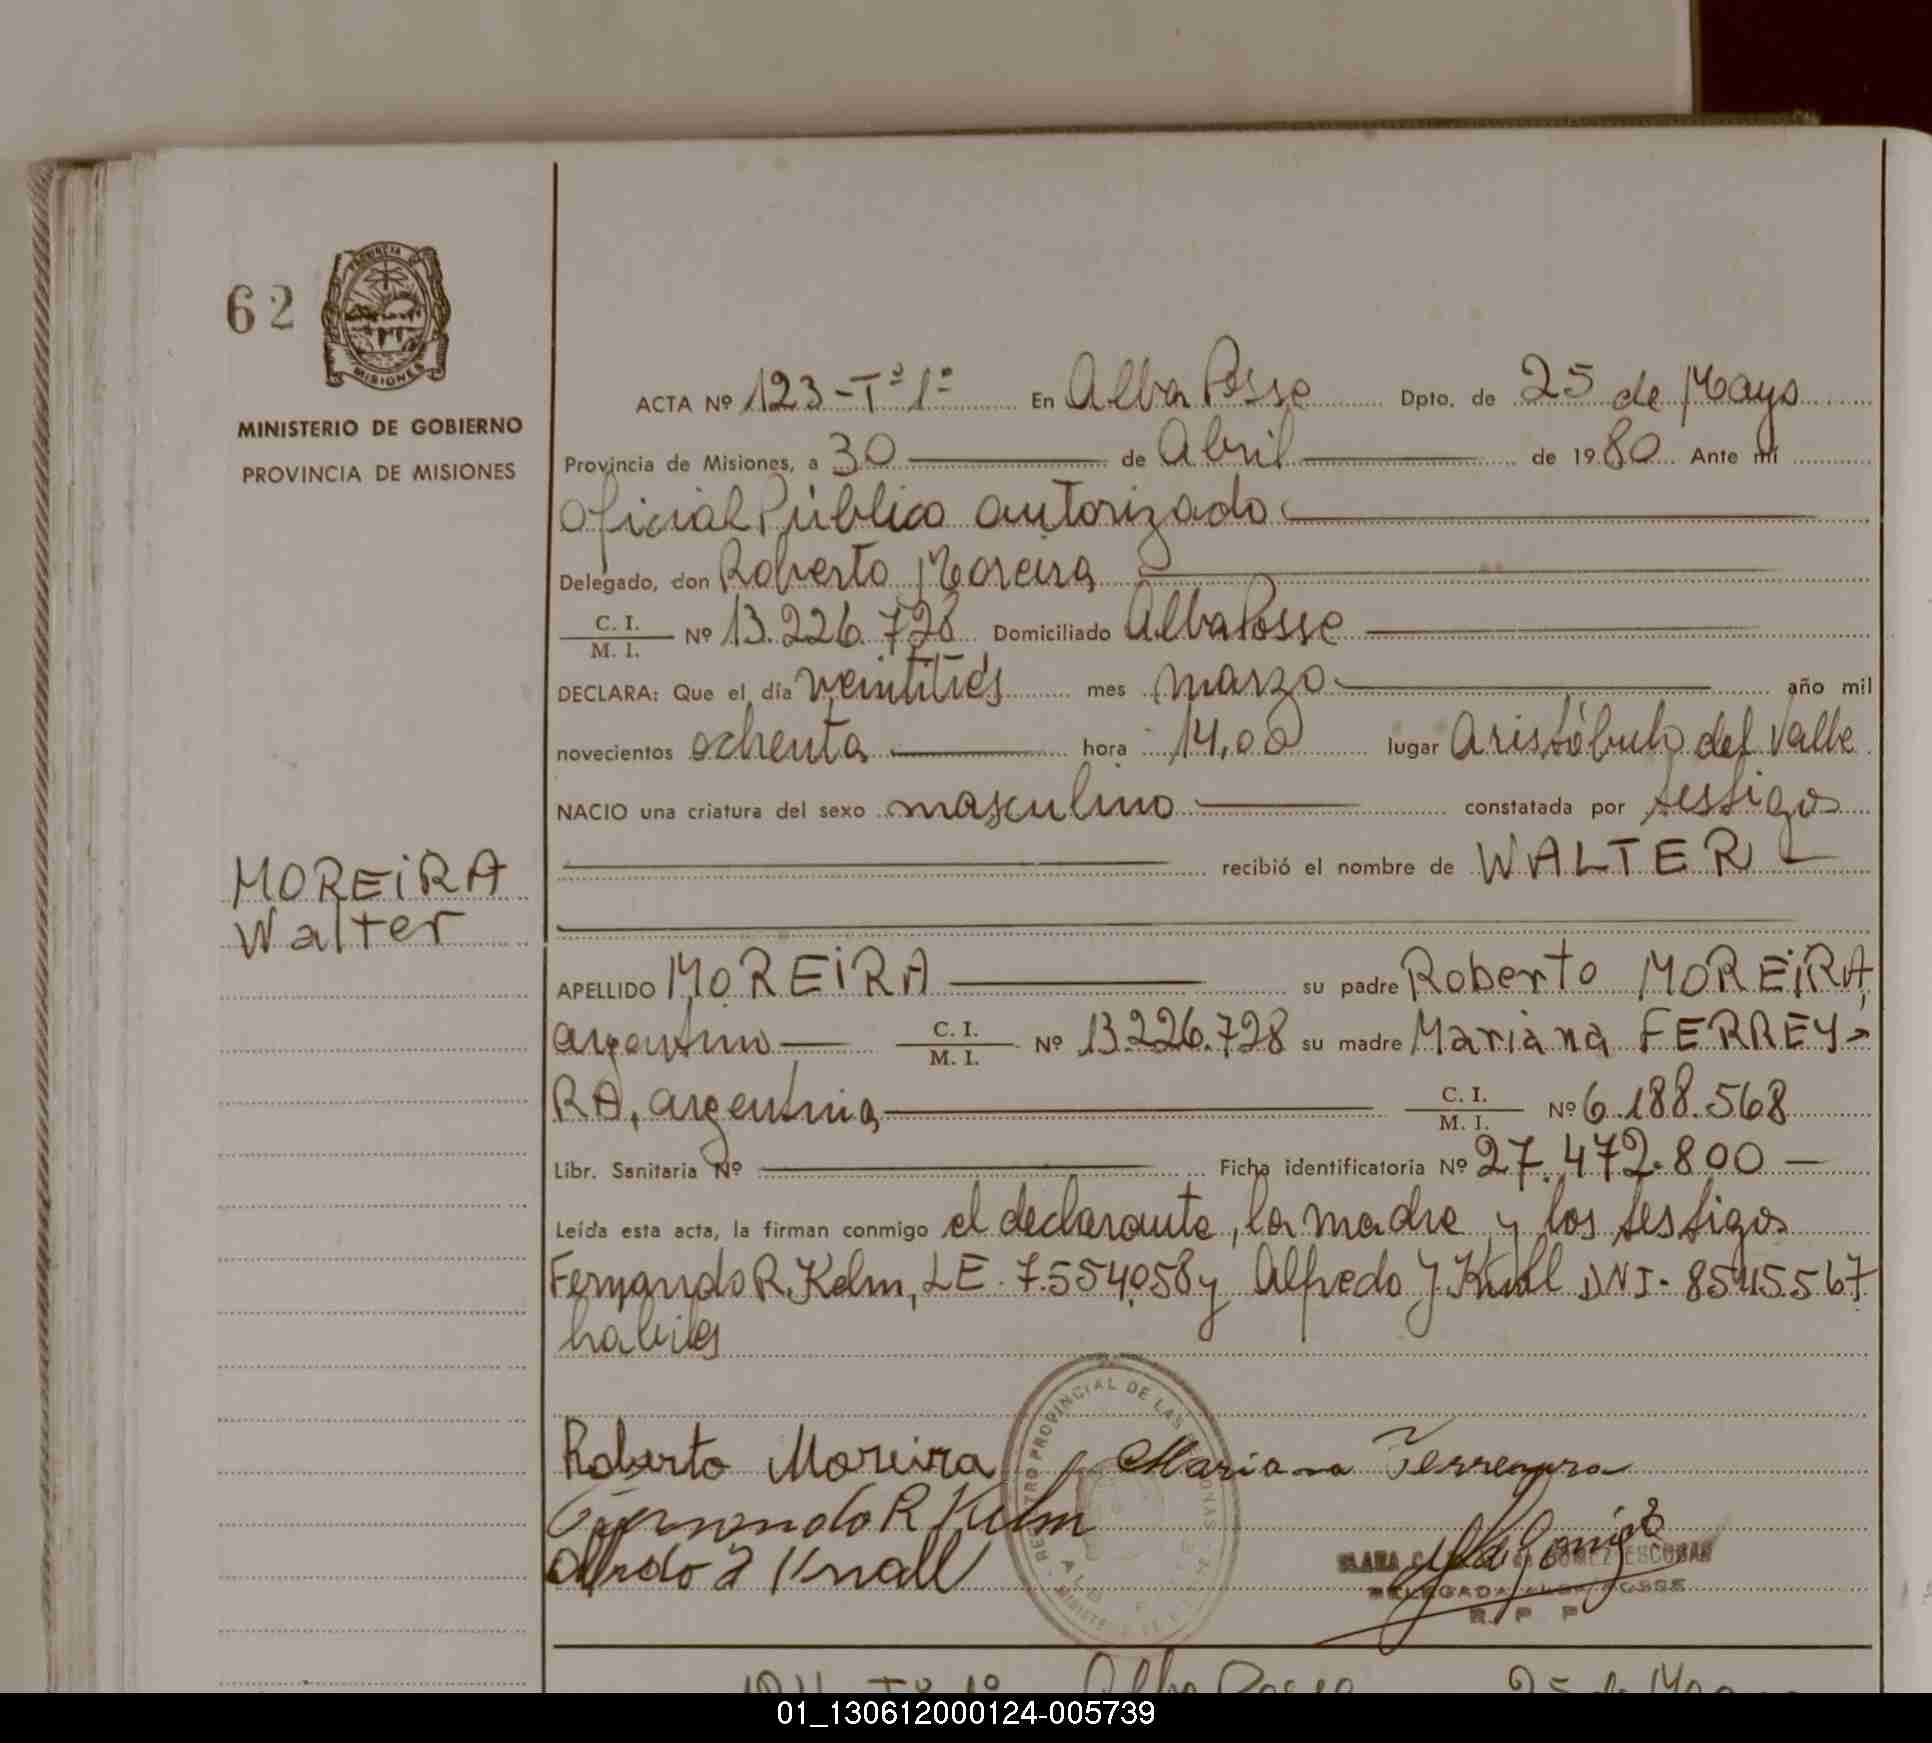 62
PROVINCIA DE
MISIONES
MINISTERIO DE GOBIERNO
PROVINCIA DE MISIONES
ACTA Nº 123-Tº 1º En Alba Posse Dpto. de 25 de Mayo
Provincia de Misiones, a 30 de Abril de 1980 Ante mí
Oficial Público autorizado
Delegado, don Roberto Moreira
C. I.
M. I. Nº 13.226.728 Domiciliado Alba Posse
DECLARA: Que el día veintitrés mes marzo año mil
novecientos ochenta hora 14,00 lugar Aristóbulo del Valle
NACIO una criatura del sexo masculino constatada por testigos
recibió el nombre de WALTER
MOREIRA
Walter
APELLIDO MOREIRA su padre Roberto MOREIRA,
argentino C. I.
M. I. Nº 13.226.728 su madre Mariana FERREY-
RA, argentina C. I.
M. I. Nº 6.188.568
Libr. Sanitaria Nº Ficha identificatoria Nº 27.472.800
Leída esta acta, la firman conmigo el declarante, la madre y los testigos
Fernando R. Kelm, LE. 7.554.058 y Alfredo J. Knall DNI. 8545567
habiles
REGISTRO PROVINCIAL DE LAS PERSONAS
Roberto Moreira Mariana Ferreyra
Fernando R Kelm
Alfredo J Knall
GOMEZ ESCOBAR
DELEGADA ALBA POSSE
R. P. P.
Alba Posse 25 de Mayo
01_130612000124-005739